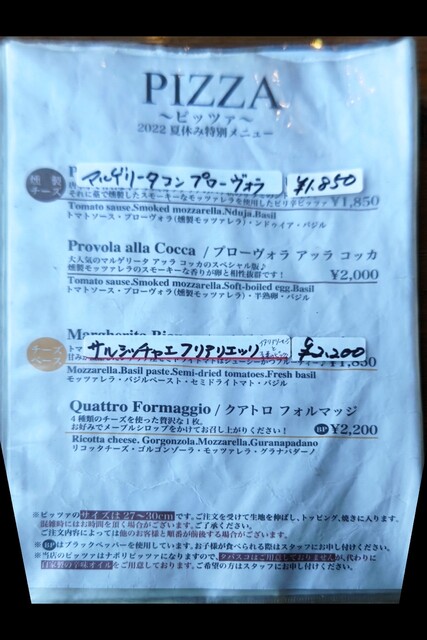 PIZZA
〜ピッツァ〜
2022 夏休み特別メニュー
燻製チーズ
マルゲリータコンプローヴォラ ¥1,850
それに薪で燻製したスモーキーなモッツァレラを使用したピリ辛ピッツァ ¥1,850
Tomato sause.Smoked mozzarella.Nduja.Basil
トマトソース・プローヴォラ(燻製モッツァレラ)・ンドゥイア・バジル
Provola alla Cocca / プローヴォラ アッラ コッカ
大人気のマルゲリータ アッラ コッカのスペシャル版♪
燻製モッツァレラのスモーキーな香りが卵と相性抜群です! ¥2,000
Tomato sause.Smoked mozzarella.Soft-boiled egg.Basil
トマトソース・プローヴォラ(燻製モッツァレラ)・半熟卵・バジル
Margherita
サルシッチャエフリアリエッリ ¥2,200
Mozzarella.Basil paste.Semi-dried tomatoes.Fresh basil
モッツァレラ・バジルペースト・セミドライトマト・バジル
Quattro Formaggio / クアトロ フォルマッジ
4種類のチーズを使った贅沢な1枚。
お好みでメープルシロップをかけてお召し上がりください! BP ¥2,200
Ricotta cheese. Gorgonzola.Mozzarella.Guranapadano
リコッタチーズ・ゴルゴンゾーラ・モッツァレラ・グラナパダーノ
※ピッツァのサイズは27〜30cmです。ご注文を受けて生地を伸ばし、トッピング、焼きに入ります。
混雑時にはお時間を頂く場合がございます。ご了承ください。
ご注文内容によっては他のお客様と順番が前後する場合がございます。
※BPはブラックペッパーを使用しています。お子様が食べられる際はスタッフにお申し付けください。
※当店のピッツァはナポリピッツァになりますので、タバスコはご用意しておりませんが、代わりに
自家製の辛味オイルをご用意しております。ご希望の方はスタッフにお申し付けください。